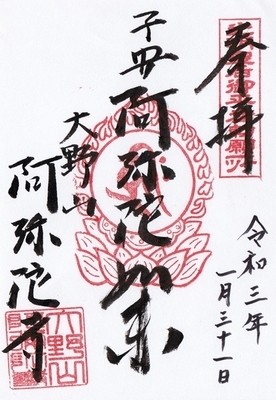 奉拝
令和三年
一月三十一日
子安阿弥陀如来
大野山
阿弥陀寺
大野山